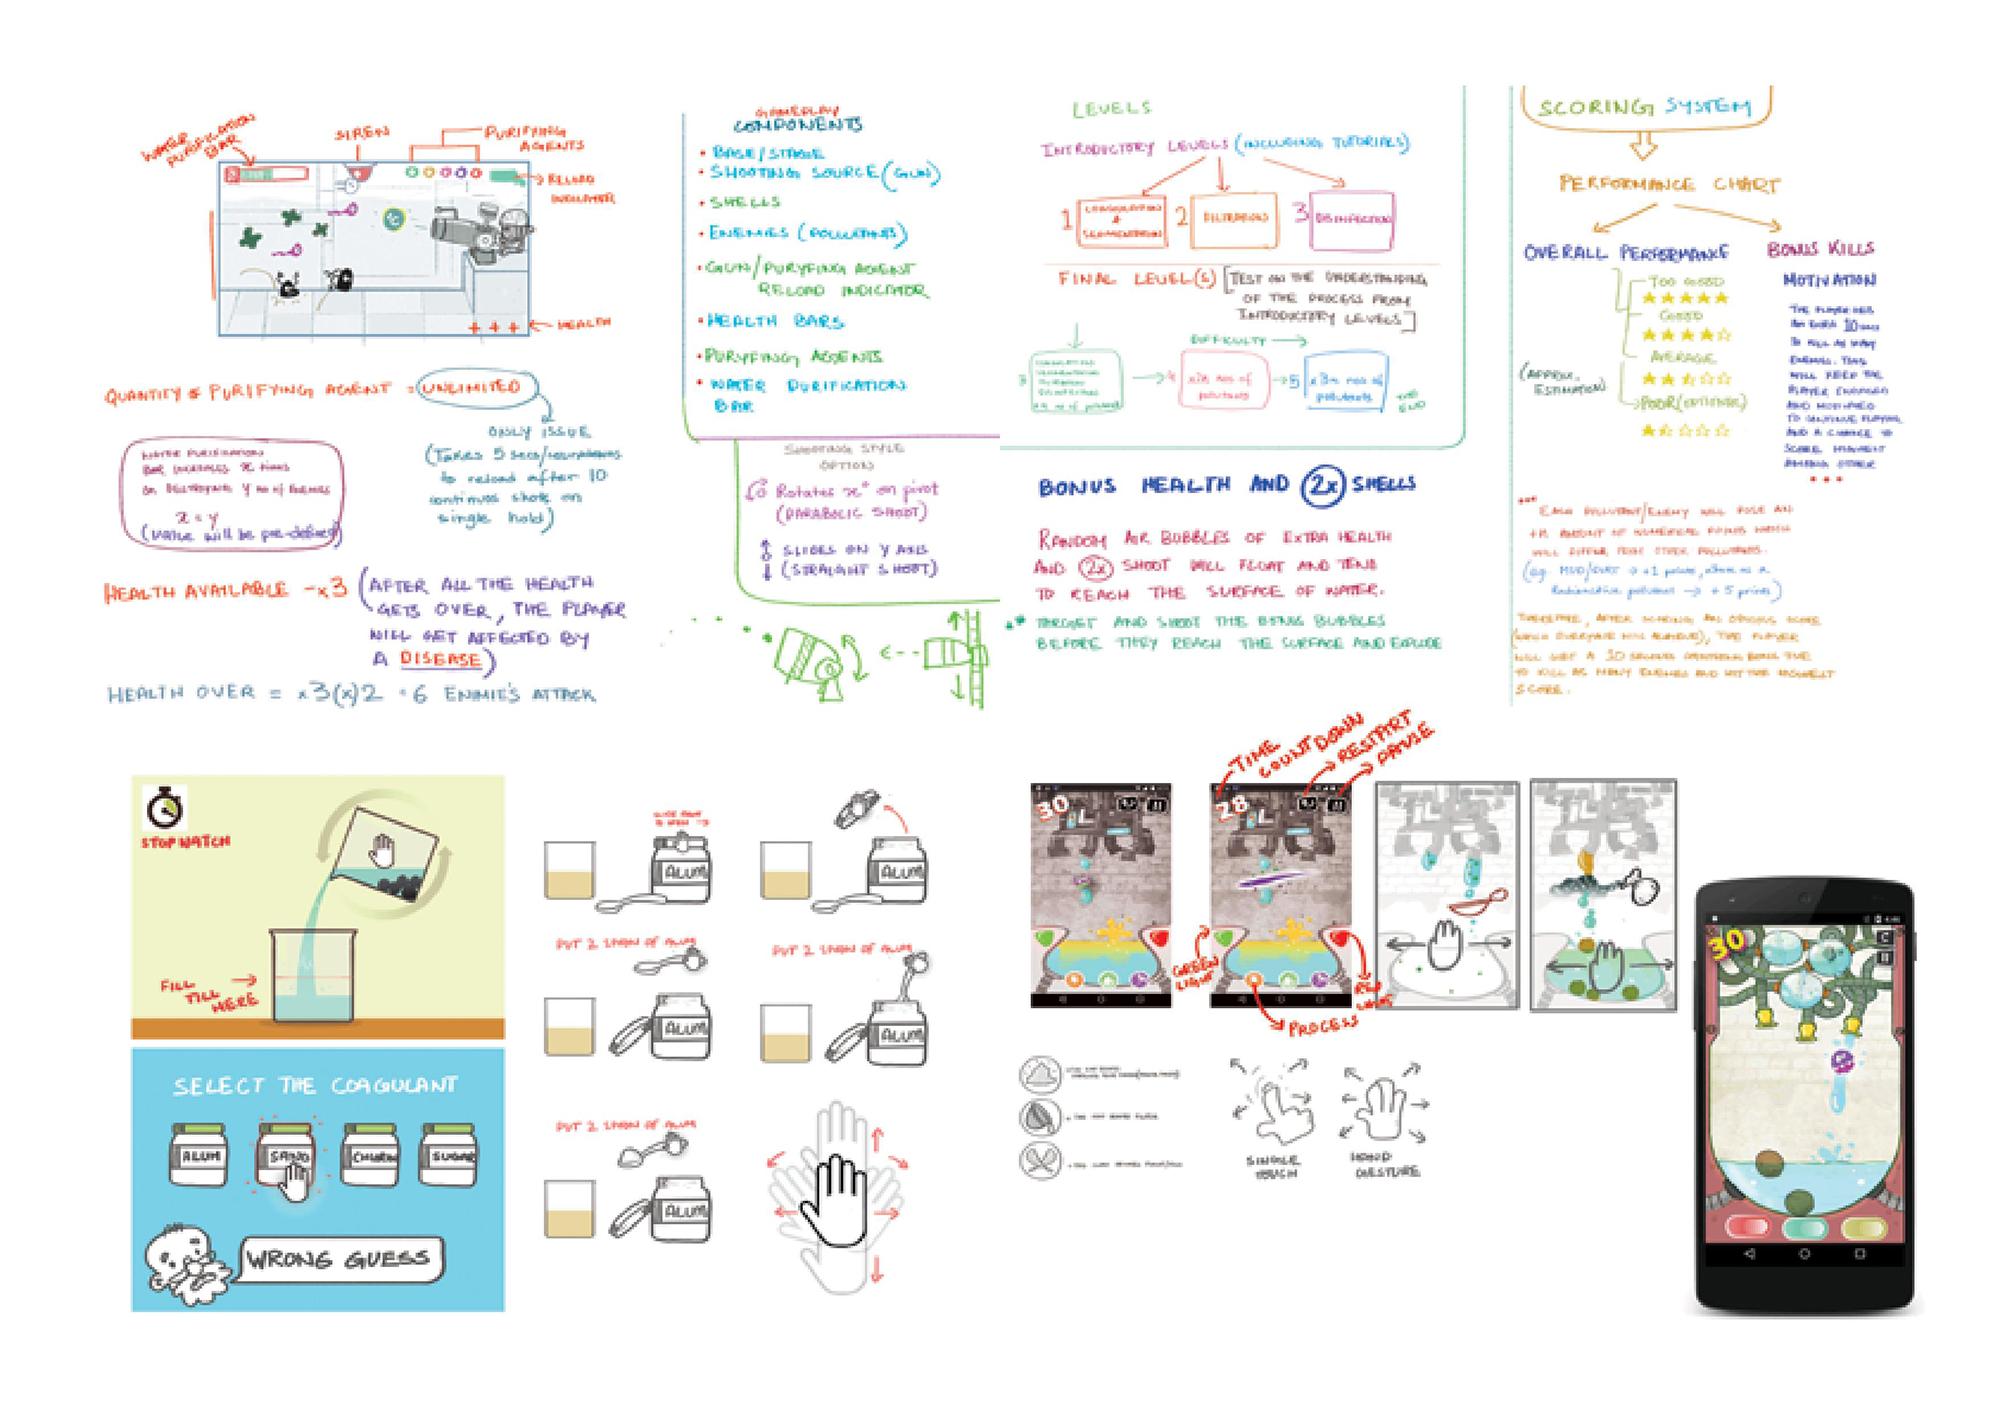 WATER
PURIFICATION
BAR
SIREN
PURIFYING
AGENTS
RELOAD
INDICATOR
+ + +
HEALTH
QUANTITY OF PURIFYING AGENT = UNLIMITED
ONLY ISSUE
(TAKES 5 secs/
to reload after 10
continuous shots on
single hold)
WATER PURIFICATION
BAR INCREASES x times
on DESTROYING Y no of ENEMIES
x = y
(value will be pre-defined)
HEALTH AVAILABLE - x3 (AFTER ALL THE HEALTH
GETS OVER, THE PLAYER
WILL GET AFFECTED BY
A DISEASE)
HEALTH OVER = x3(x)2 = 6 ENIMIE'S ATTACK
GAMEPLAY
COMPONENTS
• BASE/STAGE
• SHOOTING SOURCE (GUN)
• SHELLS
• ENEMIES (POLLUTANTS)
• GUN/PURYFING AGENT
RELOAD INDICATOR
• HEALTH BARS
• PURYFING AGENTS
• WATER PURIFICATION
BAR
SHOOTING STYLE
OPTION
Rotates x° on pivot
(PARABOLIC SHOOT)
SLIDES ON Y AXIS
(STRAIGHT SHOOT)
LEVELS
INTRODUCTORY LEVELS (INCLUDING TUTORIALS)
1
COAGULATION
&
2
FILTRATION
3
DISINFECTION
FINAL LEVEL(S) [TEST ON THE UNDERSTANDING
OF THE PROCESS FROM
INTRODUCTORY LEVELS]
DIFFICULTY
4
x2x nos of
pollutants
5
x3x nos of
pollutants
THE
END
BONUS HEALTH AND 2x SHELLS
RANDOM AIR BUBBLES OF EXTRA HEALTH
AND 2x SHOOT WILL FLOAT AND TEND
TO REACH THE SURFACE OF WATER.
** TARGET AND SHOOT THE BONUS BUBBLES
BEFORE THEY REACH THE SURFACE AND EXPLODE
SCORING SYSTEM
PERFORMANCE CHART
OVERALL PERFORMANCE
TOO GOOD
GOOD
AVERAGE
POOR (OPTIONAL)
(APPROX.
ESTIMATION)
BONUS KILLS
MOTIVATION
THE PLAYER GETS
AN EXTRA 10 secs
TO KILL AS MANY
ENEMIES. THIS
WILL KEEP THE
PLAYER ENGAGED
AND MOTIVATED
TO CONTINUE PLAYING
AND A CHANCE TO
SCORE HIGHEST
AMONG OTHER
...
*** EACH POLLUTANT/ENEMY WILL POSE AN
AMOUNT OF NUMERICAL POINTS WHICH
WILL DIFFER FROM OTHER POLLUTANTS.
(eg. MUD/DIRT → +1 points,
Radioactive pollutant → +5 points)
THEREFORE, AFTER SCORING AN OBVIOUS SCORE
(WHICH EVERYONE WILL ACHIEVE), THE PLAYER
WILL GET A 10 SECOND BONUS TIME
TO KILL AS MANY ENEMIES AND HIT THE HIGHEST
SCORE.
STOP WATCH
FILL
TILL
HERE
SELECT THE COAGULANT
ALUM
SAND
CHLORIN
SUGAR
WRONG GUESS
ALUM
ALUM
PUT 2 SPOON OF ALUM
PUT 2 SPOON OF ALUM
ALUM
ALUM
PUT 2 SPOON OF ALUM
ALUM
TIME
COUNTDOWN
RESTART
PAUSE
30
28
GREEN
LIGHT
RED
LIGHT
PROCESS
SINGLE
TOUCH
HAND
GESTURE
30